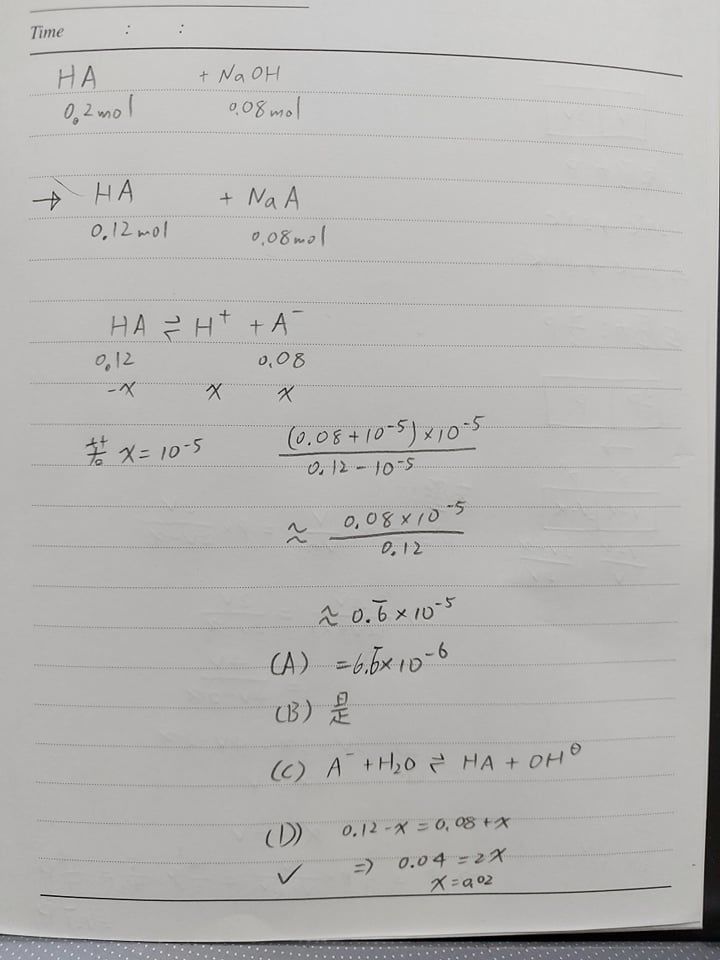 Time : :
HA + NaOH
0.2mol 0.08mol
→ HA + NaA
0.12mol 0.08mol
HA ⇌ H⁺ + A⁻
0.12 0.08
-x x x
若 x = 10⁻⁵ (0.08+10⁻⁵)×10⁻⁵
0.12-10⁻⁵
≈ 0.08×10⁻⁵
0.12
≈ 0.6̅×10⁻⁵
(A) =6.6̅×10⁻⁶
(B) 是
(C) A⁻+H₂O ⇌ HA + OH⊖
(D) 0.12-x = 0.08+x
✓ ⇒ 0.04 = 2x
x=0.02